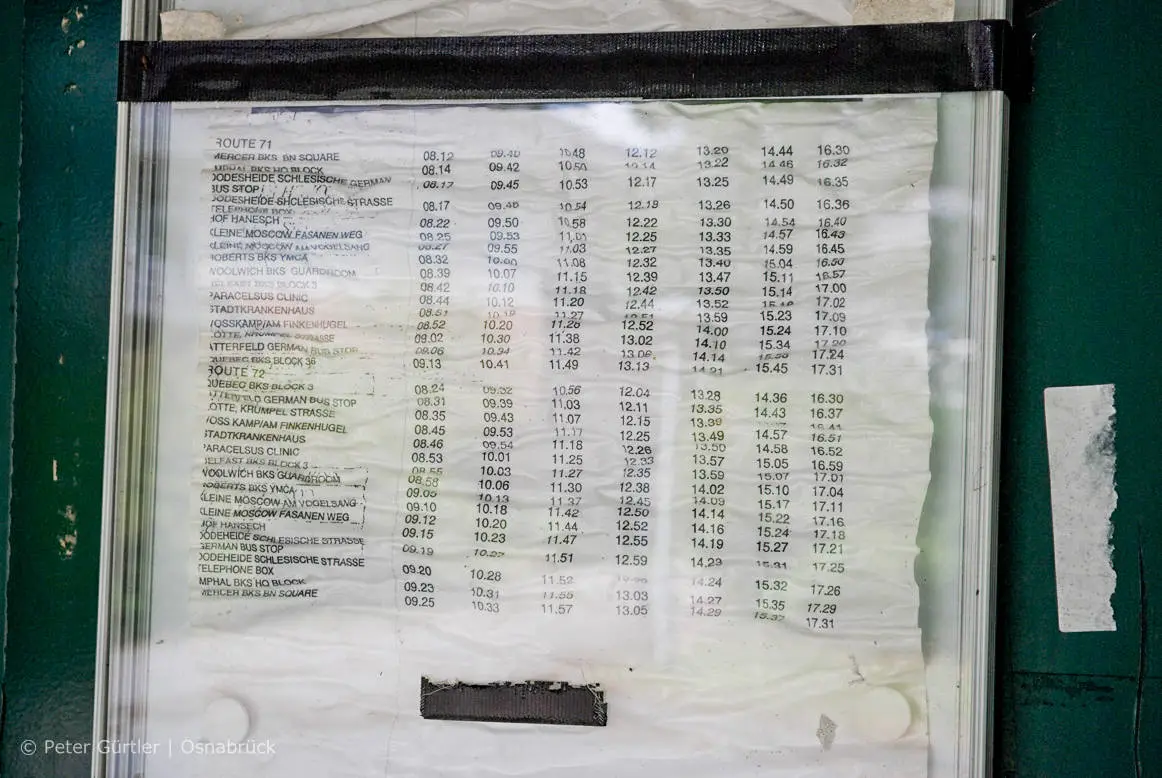 ROUTE 71
MERCER BKS BN SQUARE 08.12 09.40 10.48 12.12 13.20 14.44 16.30
MPHAL BKS HQ BLOCK 08.14 09.42 10.50 12.14 13.22 14.46 16.32
DODESHEIDE SCHLESISCHE GERMAN 08.17 09.45 10.53 12.17 13.25 14.49 16.35
BUS STOP
DODESHEIDE SHCLESISCHE STRASSE 08.17 09.46 10.54 12.18 13.26 14.50 16.36
TELEPHONE BOX
HOF HANESCH 08.22 09.50 10.58 12.22 13.30 14.54 16.40
KLEINE MOSCOW FASANEN WEG 08.25 09.53 11.01 12.25 13.33 14.57 16.43
KLEINE MOSCOW AM VOGELSANG 08.27 09.55 11.03 12.27 13.35 14.59 16.45
ROBERTS BKS YMCA 08.32 10.00 11.08 12.32 13.40 15.04 16.50
WOOLWICH BKS GUARDROOM 08.39 10.07 11.15 12.39 13.47 15.11 16.57
BELFAST BKS BLOCK 3 08.42 10.10 11.18 12.42 13.50 15.14 17.00
PARACELSUS CLINIC 08.44 10.12 11.20 12.44 13.52 17.02
STADTKRANKENHAUS 08.51 11.27 13.59 15.23 17.09
VOSSKAMP/AM FINKENHUGEL 08.52 10.20 11.28 12.52 14.00 15.24 17.10
LOTTE, KRUMPEL STRASSE 09.02 10.30 11.38 13.02 14.10 15.34 17.20
ATTERFELD GERMAN BUS STOP 09.06 10.34 11.42 13.06 14.14 17.24
QUEBEC BKS BLOCK 36 09.13 10.41 11.49 13.13 14.21 15.45 17.31
ROUTE 72
QUEBEC BKS BLOCK 3 08.24 09.32 10.56 12.04 13.28 14.36 16.30
ATTERFELD GERMAN BUS STOP 08.31 09.39 11.03 12.11 13.35 14.43 16.37
LOTTE, KRUMPEL STRASSE 08.35 09.43 11.07 12.15 13.39 16.41
VOSS KAMP/AM FINKENHUGEL 08.45 09.53 11.17 12.25 13.49 14.57 16.51
STADTKRANKENHAUS 08.46 09.54 11.18 12.26 13.50 14.58 16.52
PARACELSUS CLINIC 08.53 10.01 11.25 12.33 13.57 15.05 16.59
BELFAST BKS BLOCK 3 08.55 10.03 11.27 12.35 13.59 15.07 17.01
WOOLWICH BKS GUARDROOM 08.58 10.06 11.30 12.38 14.02 15.10 17.04
ROBERTS BKS YMCA 09.05 10.13 11.37 12.45 14.09 15.17 17.11
KLEINE MOSCOW AM VOGELSANG 09.10 10.18 11.42 12.50 14.14 15.22 17.16
KLEINE MOSCOW FASANEN WEG 09.12 10.20 11.44 12.52 14.16 15.24 17.18
HOF HANSECH 09.15 10.23 11.47 12.55 14.19 15.27 17.21
DODEHEIDE SCHLESISCHE STRASSE 09.19 10.27 11.51 12.59 14.23 15.31 17.25
GERMAN BUS STOP
DODEHEIDE SCHLESISCHE STRASSE 09.20 10.28 11.52 14.24 15.32 17.26
TELEPHONE BOX
MPHAL BKS HQ BLOCK 09.23 10.31 11.55 13.03 14.27 15.35 17.29
MERCER BKS BN SQUARE 09.25 10.33 11.57 13.05 14.29 15.37 17.31
© Peter Gürtler | Osnabrück